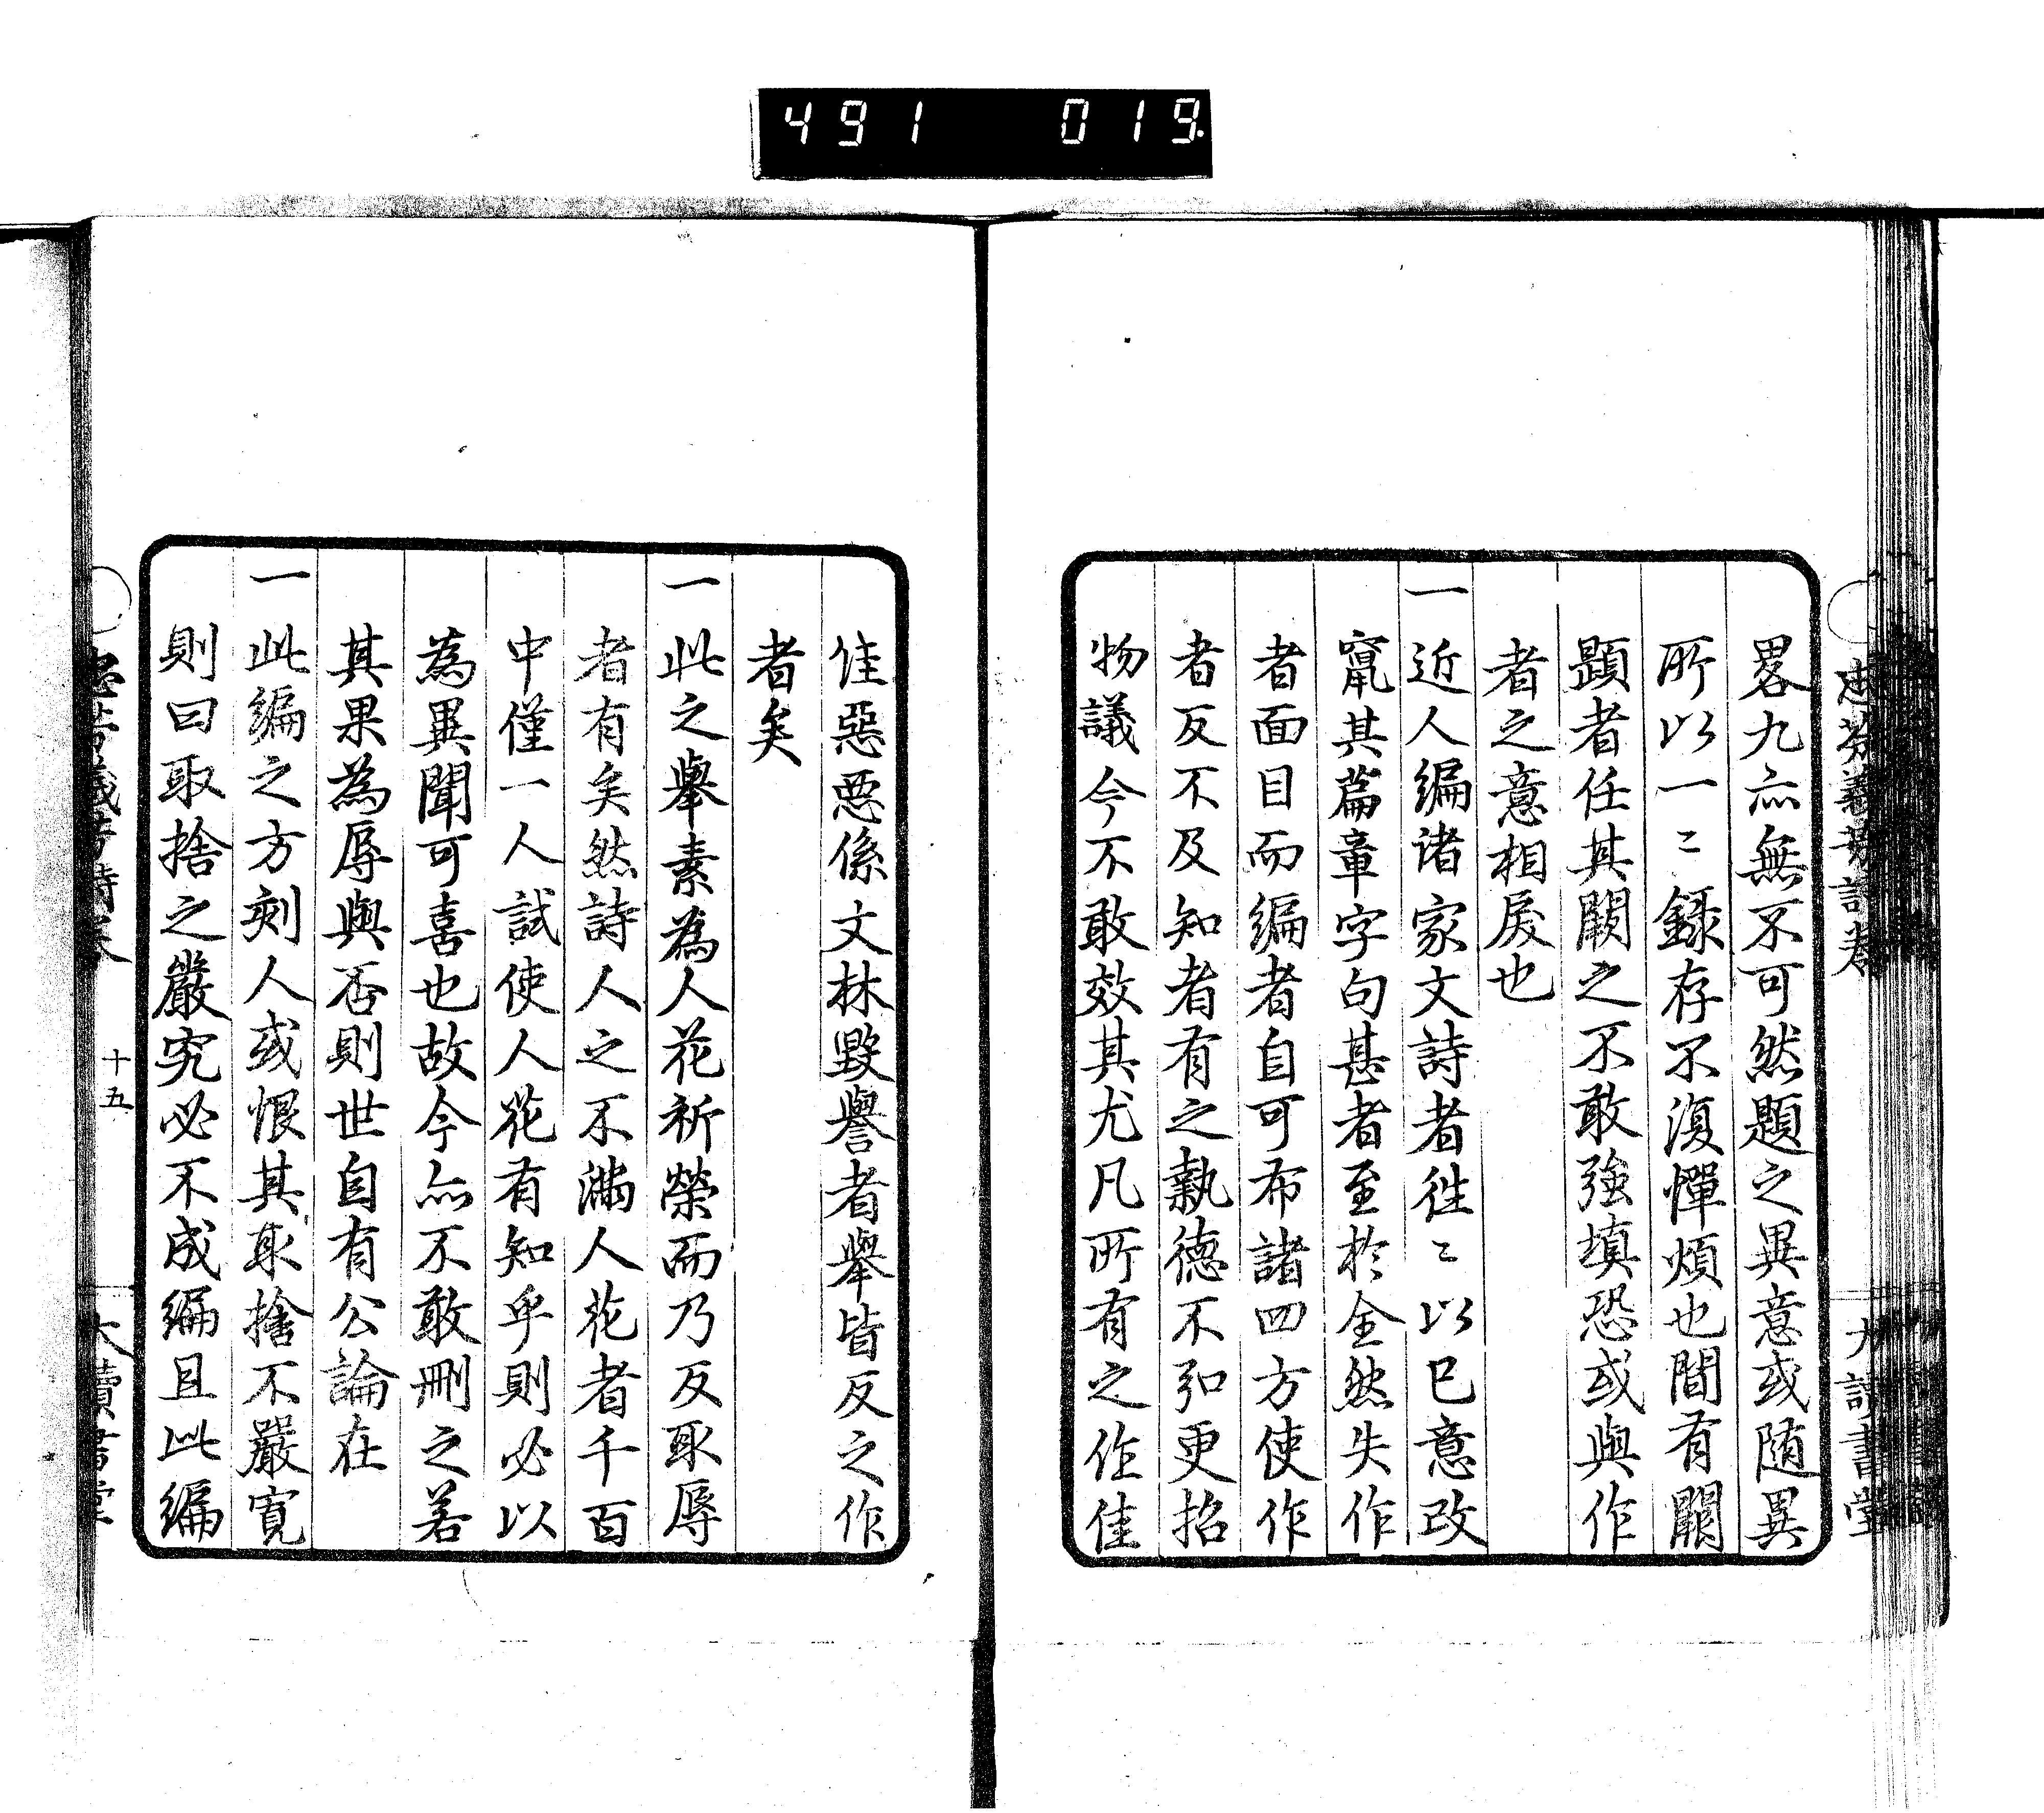 491 019
畧九亦無不可然題之異意或随異
所以一〻録存不復憚煩也間有闕
題者任其闕之不敢強填恐或與作
者之意相戻也
一近人編诸家文詩者徃〻以已意改
竄其篇章字句甚者至於全然失作
者面目而編者自可布諸四方使作
者反不及知者有之執德不弘更招
物議今不敢效其尤凡所有之作佳
佳惡惡係文林毀譽者舉皆反之作
者矣
一此之舉素為人花祈榮而乃反取辱
者有矣然詩人之不滿人花者千百
中僅一人試使人花有知乎則必以
為異聞可喜也故今亦不敢刪之若
其果為辱與否則世自有公論在
一此編之方刻人或恨其取捨不嚴寛
則曰取捨之嚴究必不成編且此編
十五